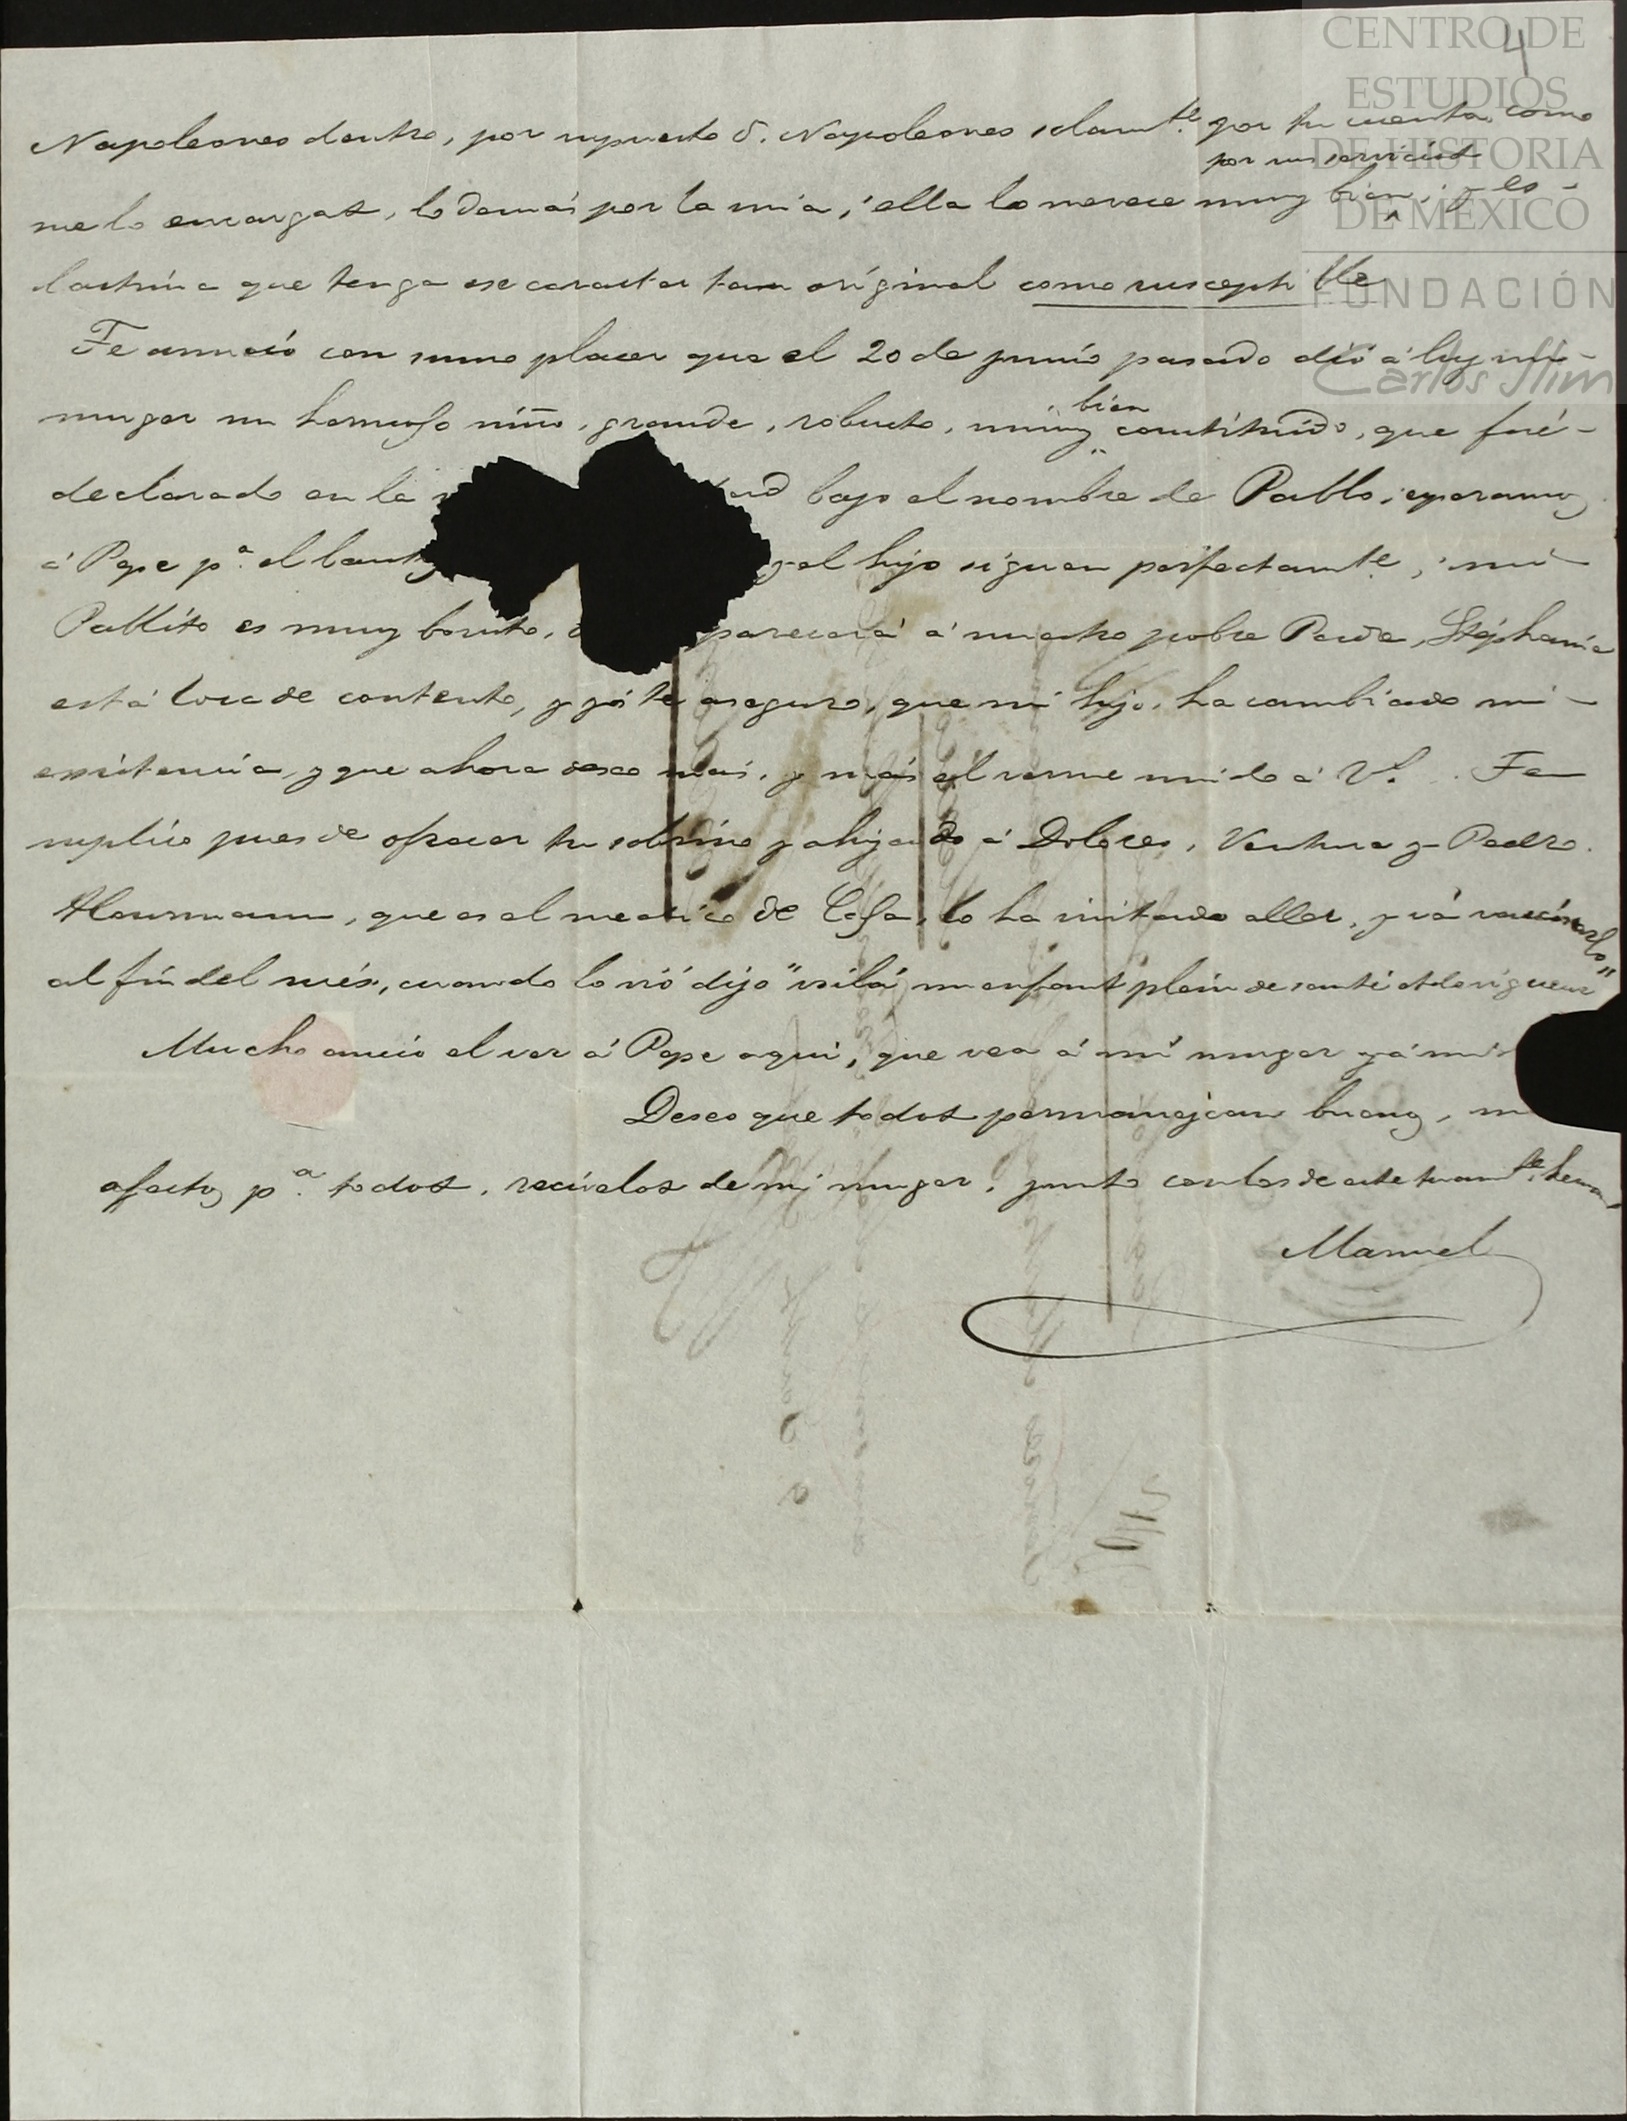 4
CENTRO DE
ESTUDIOS
DE HISTORIA
DE MÉXICO
FUNDACIÓN
Carlos Slim
Napoleones dentro, por supuesto 5. Napoleones solam.te por tu cuenta como
por sus servicios
me lo encargas, lo demás por la mia, ella lo merece muy bien, y es
lastima que tenga ese caracter tan original como susceptible
Te anuncio con sumo placer que el 20 de junio pasado dió á luz mi
muger un hermoso niño, grande, robusto, muy bien constituido, que fué
declarado en la bajo el nombre de Pablo, esperamos
á Pepe p.a el y el hijo siguen perfectam.te, mi
Pablito es muy bonito, parecerá á nuestro pobre Padre, Stéphanie
está loca de contento, y yó te aseguro, que mi hijo, ha cambiado mi
existencia, y que ahora deseo más, y más el verme unido á V.s Te
suplico pues de ofrecer tu sobrino y ahijado á Dolores, Ventura y Pedro.
que es el medico de Casa, lo ha visitado aller, y vá vacunarlo
al fin del més, cuando lo vió dijo "voilá un enfant plein de santé et de vigueur"
Mucho ancio el ver á Pepe aqui, que vea á mi muger y á mi
Deseo que todos permanezcan buenos, m
afectos p.a todos, recívelos de mi muger, junto con los de este tu am.te herm.
Manuel